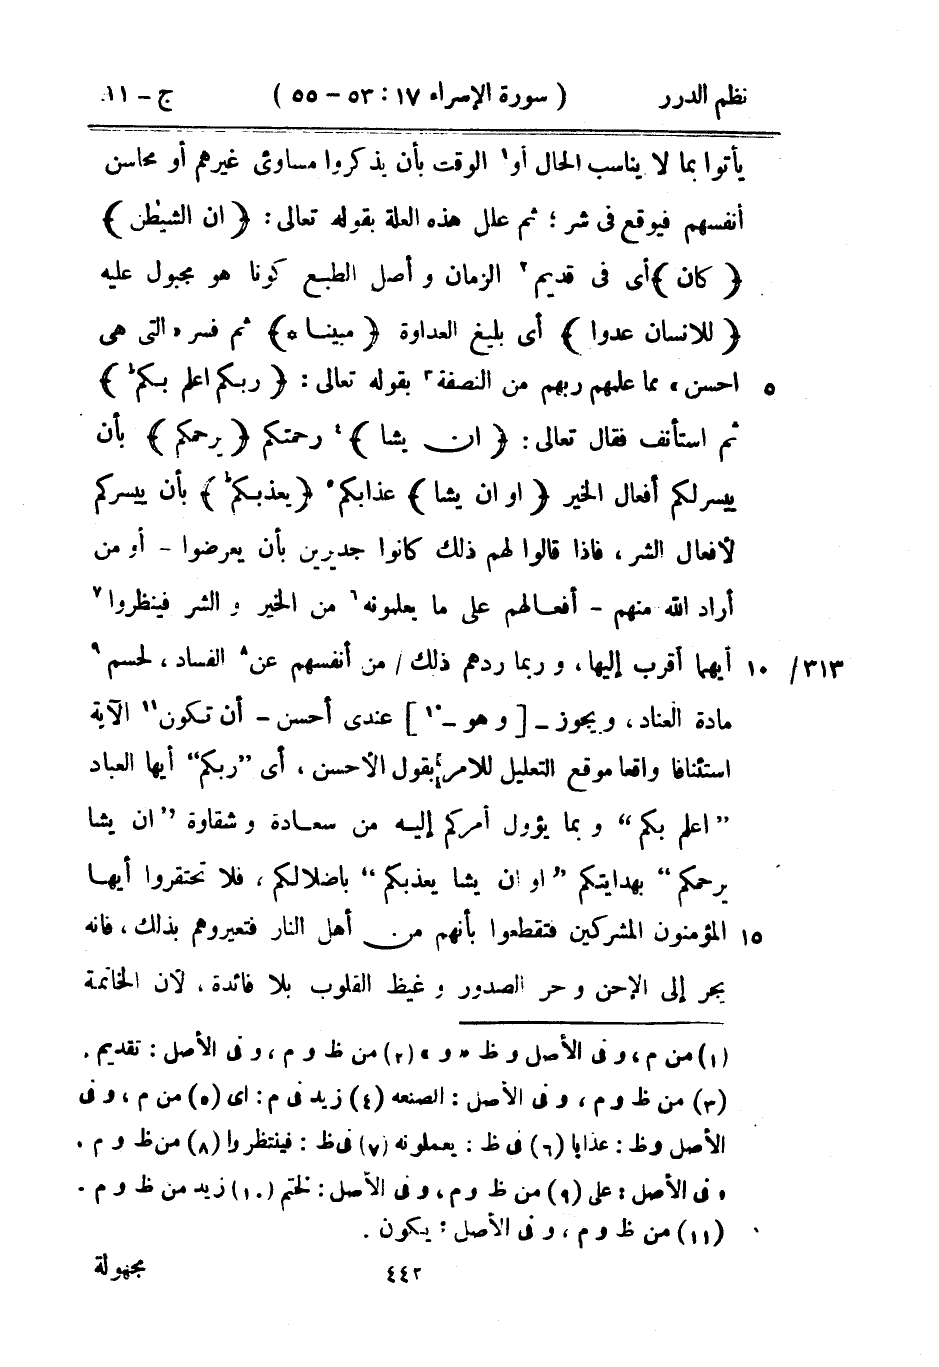 نظم الدرر ( سورة الإسراء ١٧ : ٥٣ – ٥٥ ) ج – ١١
يأتوا بما لا يناسب الحال أو١ الوقت بأن يذكروا مساوئ غيرهم أو محاسن
أنفسهم فيوقع فى شر ؛ ثم علل هذه العلة بقوله تعالى : ﴿ ان الشيطٰن ﴾
﴿ كان ﴾ أى فى قديم٢ الزمان و أصل الطبع كونا هو مجبول عليه
﴿ للانسان عدوا ﴾ أى بليغ العداوة ﴿ مبينا ه ﴾ ثم فسر « التى هى
٥ احسن » مما علمهم ربهم من النصفة٣ بقوله تعالى : ﴿ ربكم اعلم بكم ط ﴾
ثم استأنف فقال تعالى : ﴿ ان يشا ﴾٤ رحمتكم ﴿ يرحمكم ﴾ بأن
ييسر لكم أفعال الخير ﴿ او ان يشا ﴾ عذابكم٥ ﴿ يعذبكم ط ﴾ بأن ييسركم
لأفعال الشر ، فاذا قالوا لهم ذلك كانوا جديرين بأن يعرضوا – أو من
أراد الله منهم – أفعالهم على ما يعلمونه٦ من الخير و الشر فينظروا٧
٣١٣/ ١٠ أيهما أقرب إليها ، و ربما ردهم ذلك / من أنفسهم عن٨ الفساد ، لحسم٩
مادة العناد ، و يجوز – [ و هو –١٠ ] عندى أحسن – أن تكون١١ الآية
استئنافا واقعا موقع التعليل للامر بقول الأحسن ، أى ”ربكم“ أيها العباد
”اعلم بكم“ و بما يؤول أمركم إليه من سعادة و شقاوة ”ان يشا
يرحمكم“ بهدايتكم ”او ان يشا يعذبكم“ باضلالكم ، فلا تحتقروا أيها
١٥ المؤمنون المشركين فتقطعوا بأنهم من أهل النار فتعيروهم بذلك ، فانه
يجر إلى الإحن و حر الصدور و غيظ القلوب بلا فائدة ، لأن الخاتمة
(١) من م ، و فى الأصل و ظ « و » (٢) من ظ و م ، و فى الأصل : تقديم .
(٣) من ظ و م ، و فى الأصل : الصنعه (٤) زيد فى م : اى (٥) من م ، و فى
الأصل وظ : عذابا (٦) فى ظ : يعملونه (٧) فى ظ : فينتظروا (٨) من ظ و م ،
و فى الأصل : على (٩) من ظ و م ، و فى الأصل : لختم (١٠) زيد من ظ و م .
(١١) من ظ و م ، و فى الأصل : يكون .
٤٤٢ مجهولة